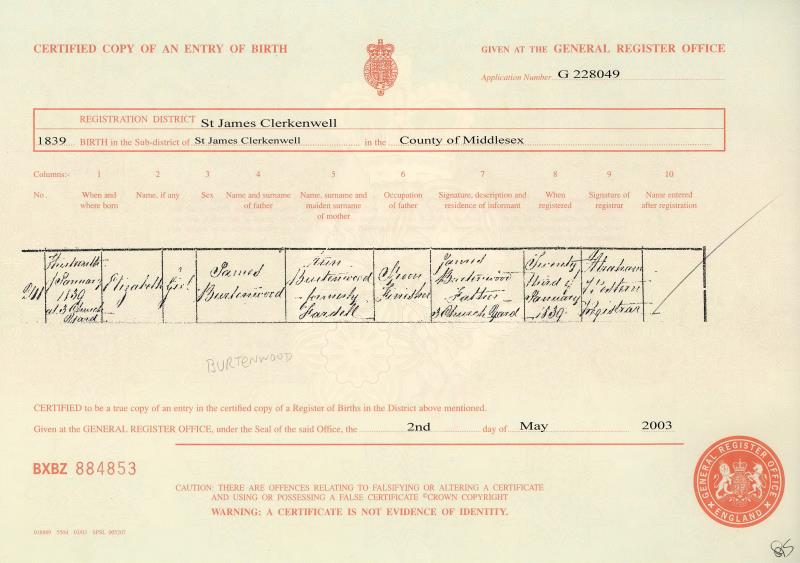 CERTIFIED COPY OF AN ENTRY OF BIRTH
GIVEN AT THE GENERAL REGISTER OFFICE
Application Number G 228049
REGISTRATION DISTRICT St James Clerkenwell
1839 BIRTH in the Sub-district of St James Clerkenwell in the County of Middlesex
Columns:- 1 2 3 4 5 6 7 8 9 10
No. When and where born Name, if any Sex Name and surname of father Name, surname and maiden surname of mother Occupation of father Signature, description and residence of informant When registered Signature of registrar Name entered after registration
January 1839 at 3 Church Yard
Elizabeth
Girl
James Burtenwood
Ann Burtenwood formerly Fardell
Finisher
James Burtenwood Father 3 Church Yard
Twenty third of January 1839
Abraham Registrar
BURTENWOOD
CERTIFIED to be a true copy of an entry in the certified copy of a Register of Births in the District above mentioned.
Given at the GENERAL REGISTER OFFICE, under the Seal of the said Office, the 2nd day of May 2003
BXBZ 884853
CAUTION: THERE ARE OFFENCES RELATING TO FALSIFYING OR ALTERING A CERTIFICATE
AND USING OR POSSESSING A FALSE CERTIFICATE ©CROWN COPYRIGHT
WARNING: A CERTIFICATE IS NOT EVIDENCE OF IDENTITY.
GENERAL REGISTER OFFICE
ENGLAND